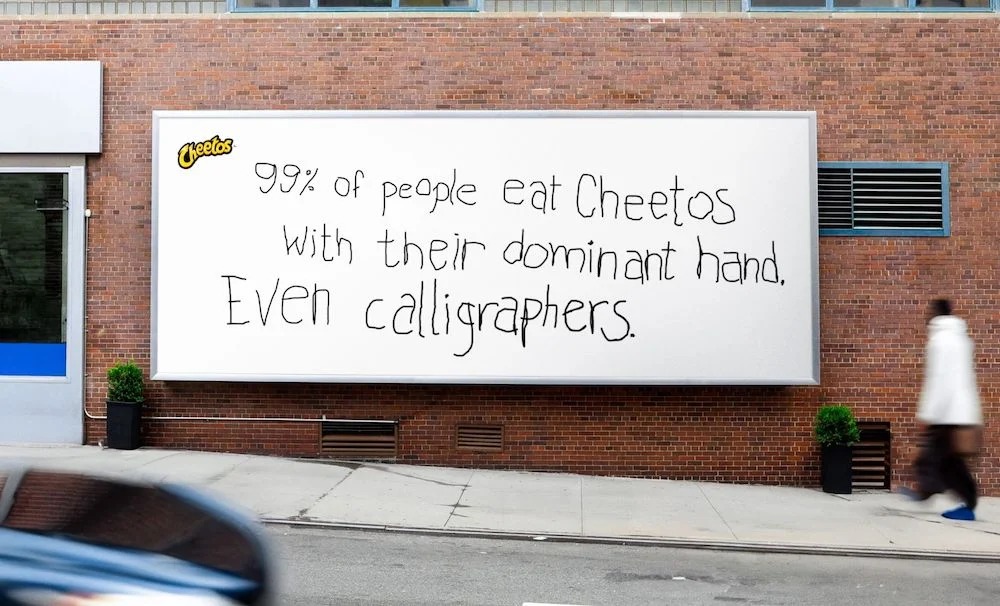 Cheetos
99% of people eat Cheetos
with their dominant hand.
Even calligraphers.